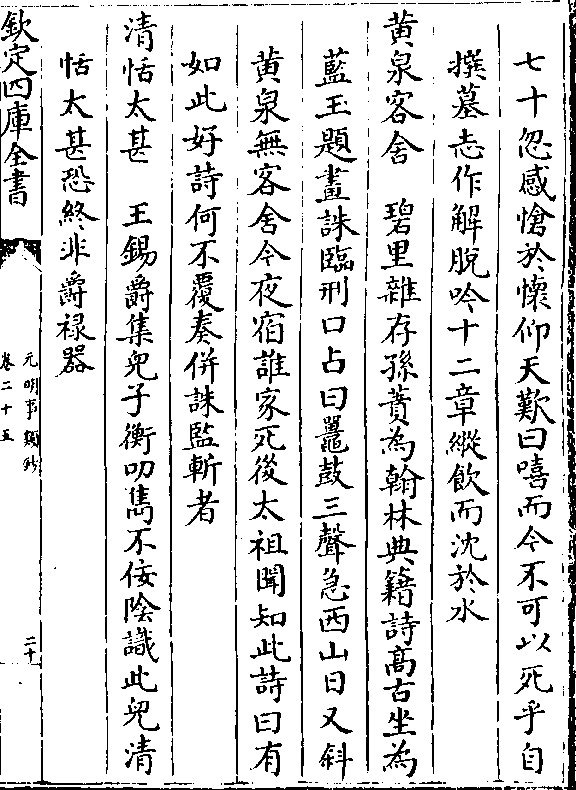 七十忽感愴於懷仰天歎曰嘻而今不可以死乎自
撰墓志作解脫吟十二章縱飲而沈於水
黄泉客舍　碧里雜存孫蕡為翰林典籍詩髙古坐為
藍玉題畫誅臨刑口占曰鼉鼓三聲急西山日又斜
黄泉無客舍今夜宿誰家死後太祖聞知此詩曰有
如此好詩何不覆奏併誅監斬者
清恬太甚　王錫爵集兒子衡叨雋不佞隂識此兒清
恬太甚恐終非爵禄器
欽定四庫全書
元明事類鈔
卷二十五
二十